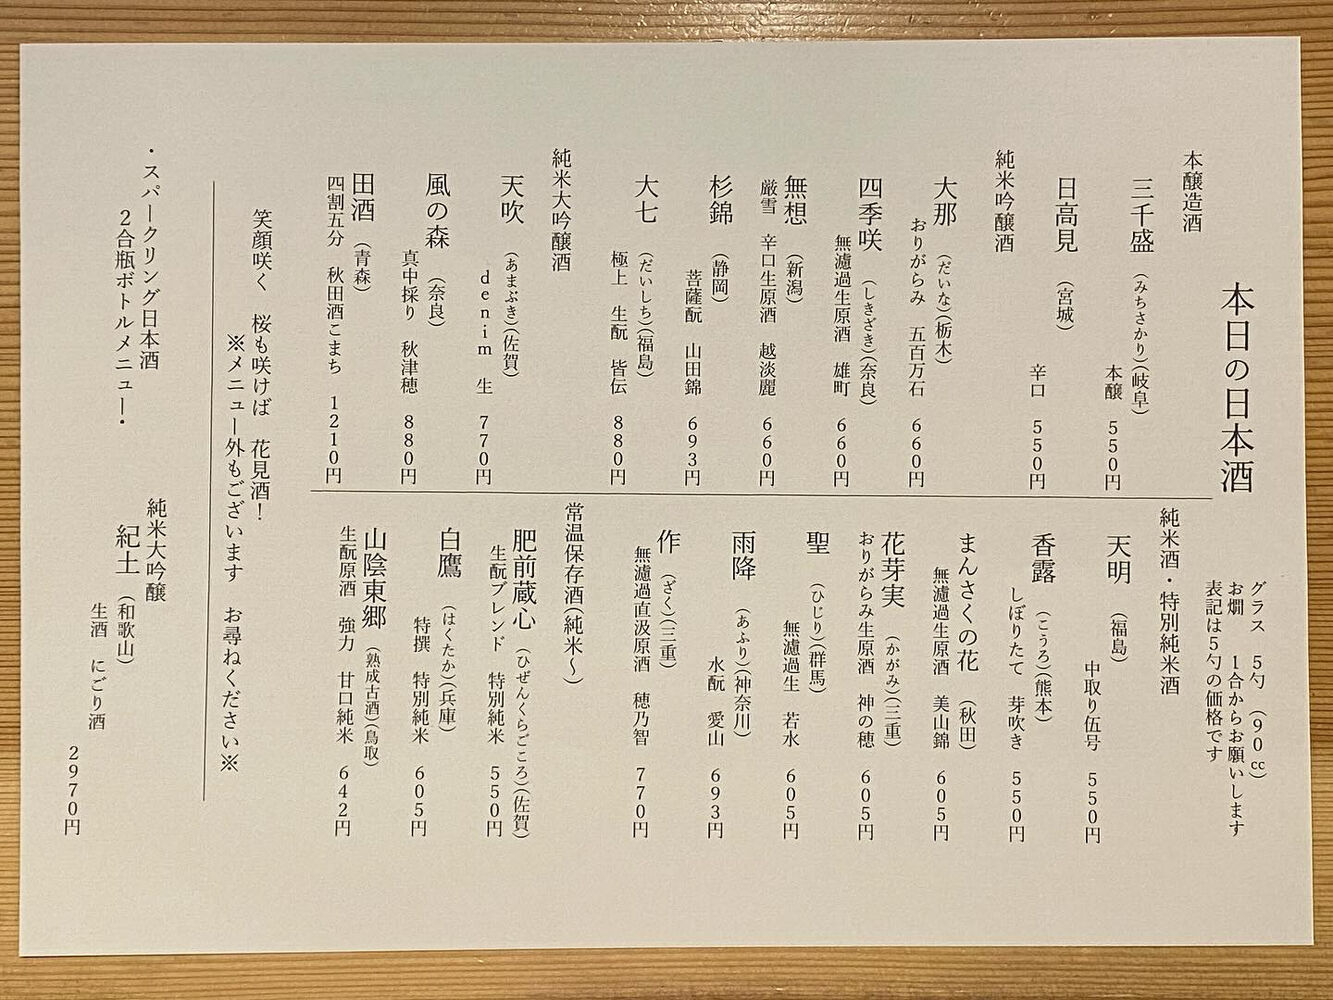 本日の日本酒
グラス　5勺　(90㏄)
お燗　1合からお願いします
表記は5勺の価格です
本醸造酒
三千盛　(みちさかり)(岐阜)
本醸　550円
日高見　(宮城)
辛口　550円
純米吟醸酒
大那　(だいな)(栃木)
おりがらみ　五百万石　660円
四季咲　(しきざき)(奈良)
無濾過生原酒　雄町　660円
無想　(新潟)
厳雪　辛口生原酒　越淡麗　660円
杉錦　(静岡)
菩薩酛　山田錦　693円
大七　(だいしち)(福島)
極上　生酛　皆伝　880円
純米大吟醸酒
天吹　(あまぶき)(佐賀)
denim　生　770円
風の森　(奈良)
真中採り　秋津穂　880円
田酒　(青森)
四割五分　秋田酒こまち　1210円
純米酒・特別純米酒
天明　(福島)
中取り伍号　550円
香露　(こうろ)(熊本)
しぼりたて　芽吹き　550円
まんさくの花　(秋田)
無濾過生原酒　美山錦　605円
花芽実　(かがみ)(三重)
おりがらみ生原酒　神の穂　605円
聖　(ひじり)(群馬)
無濾過生　若水　605円
雨降　(あふり)(神奈川)
水酛　愛山　693円
作　(ざく)(三重)
無濾過直汲原酒　穂乃智　770円
常温保存酒(純米〜)
肥前蔵心　(ひぜんくらごころ)(佐賀)
生酛ブレンド　特別純米　550円
白鷹　(はくたか)(兵庫)
特撰　特別純米　605円
山陰東郷　(熟成古酒)(鳥取)
生酛原酒　強力　甘口純米　642円
笑顔咲く　桜も咲けば　花見酒！
※メニュー外もございます　お尋ねください※
・スパークリング日本酒
2合瓶ボトルメニュー・
純米大吟醸
紀土　(和歌山)
生酒　にごり酒
2970円